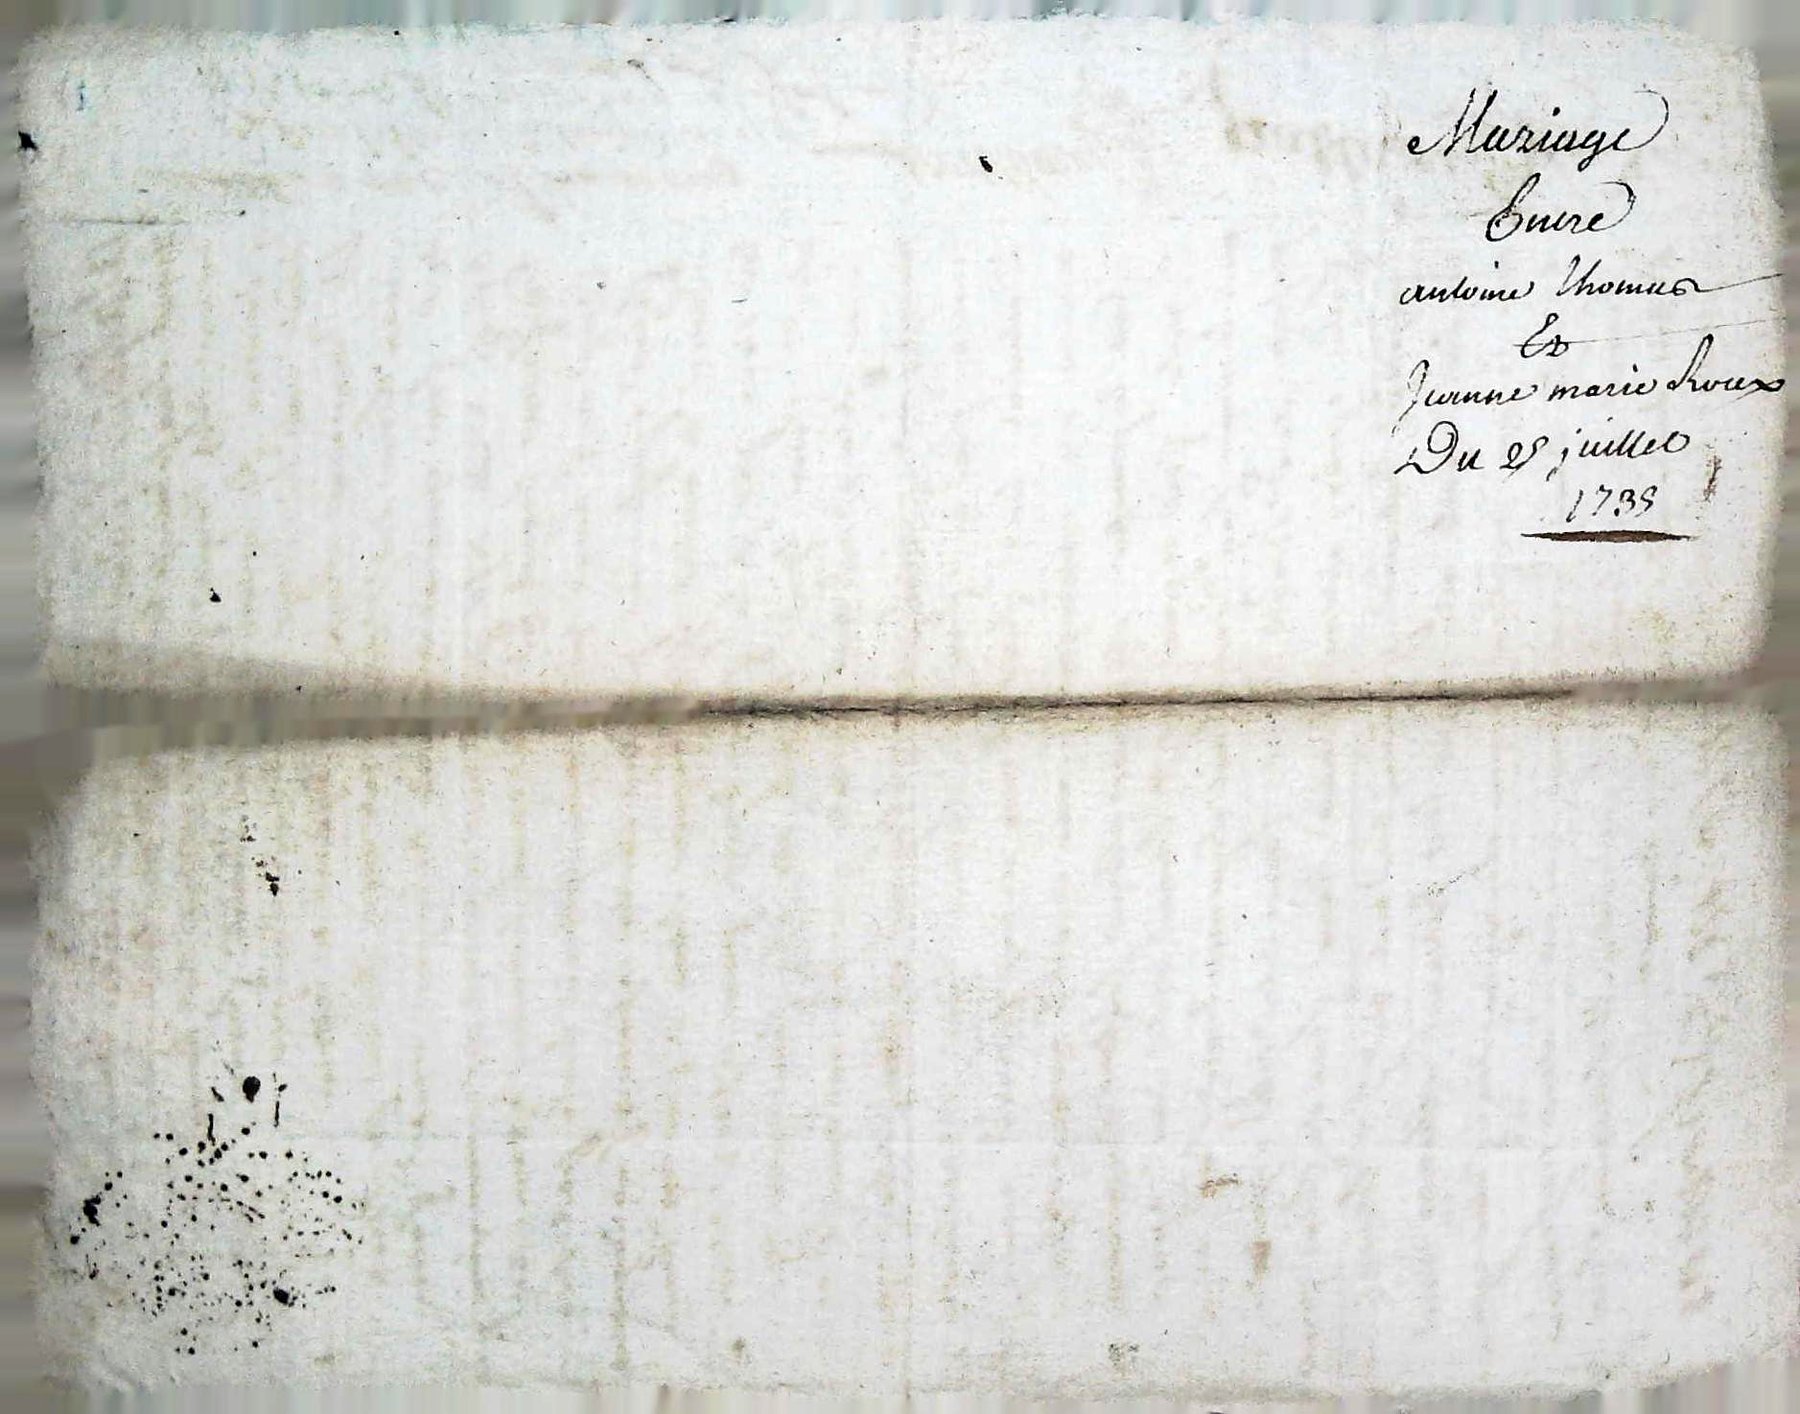 Mariage
Entre
antoine thomas
Et
Jeanne marie Roux
Du 25 juillet
1735